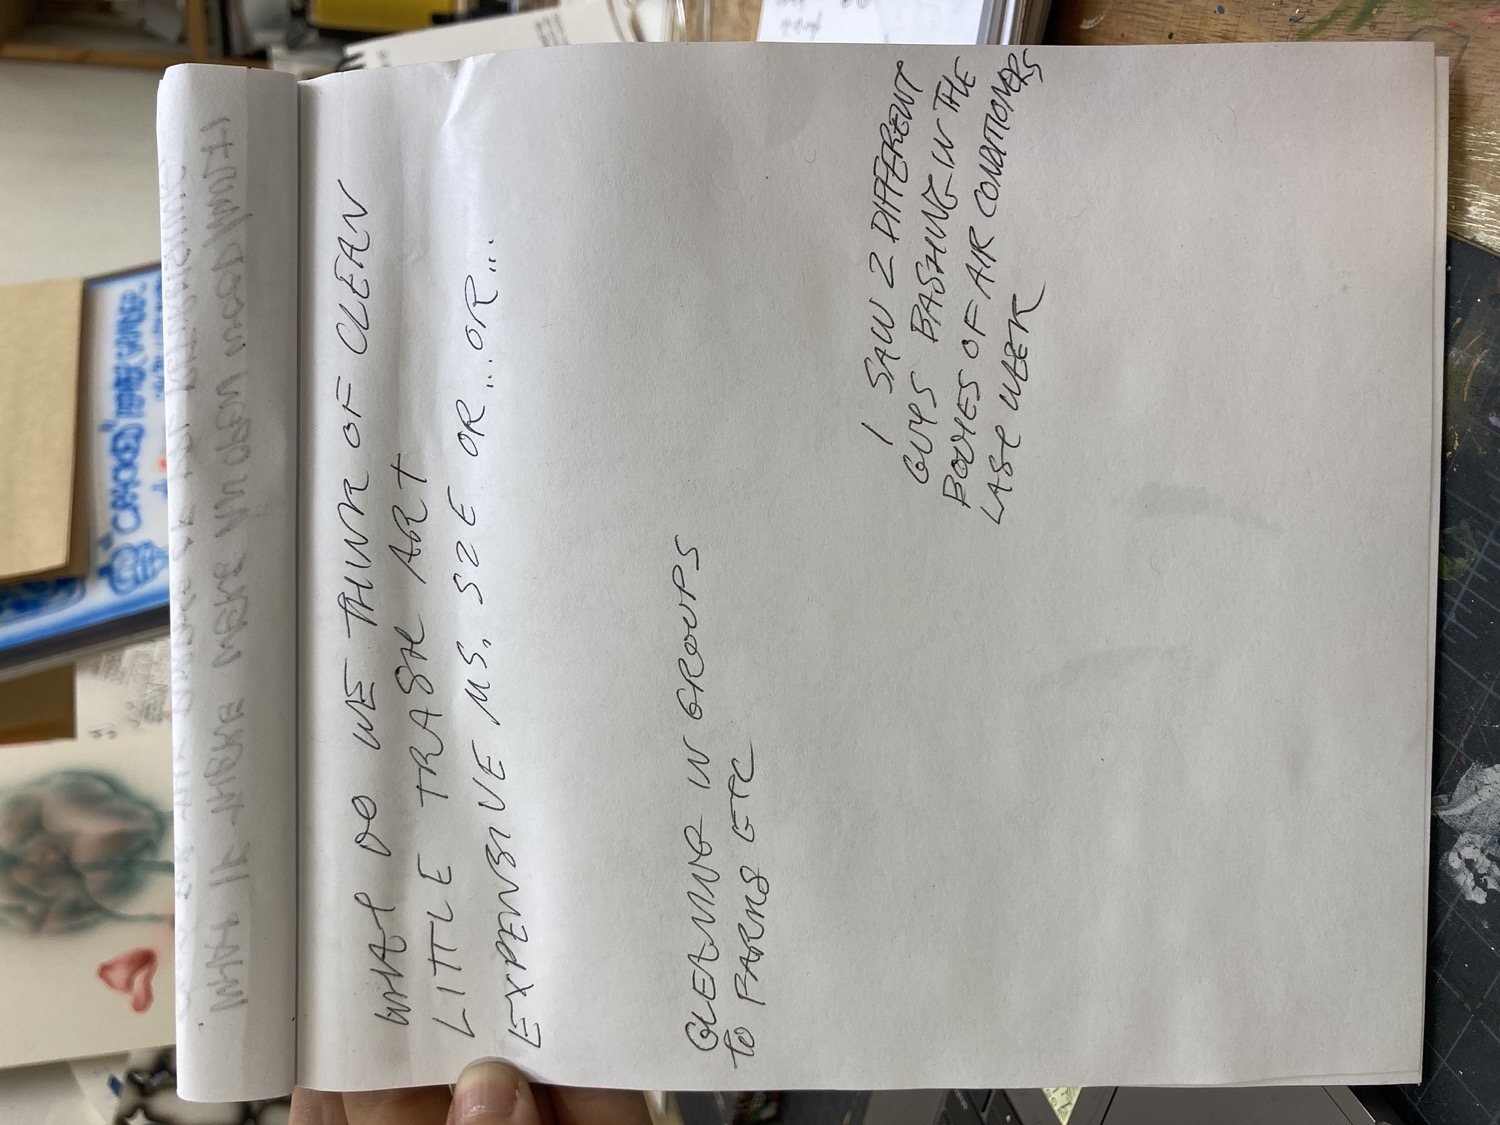 WHAT DO WE THINK OF CLEAN
LITTLE TRASH ART
EXPENSIVE MS. SZE OR...OR...
GLEANING IN GROUPS
TO FARMS ETC
I SAW 2 DIFFERENT
GUYS BASHING IN THE
BODIES OF AIR CONDITIONERS
LAST WEEK
"CRACKED"